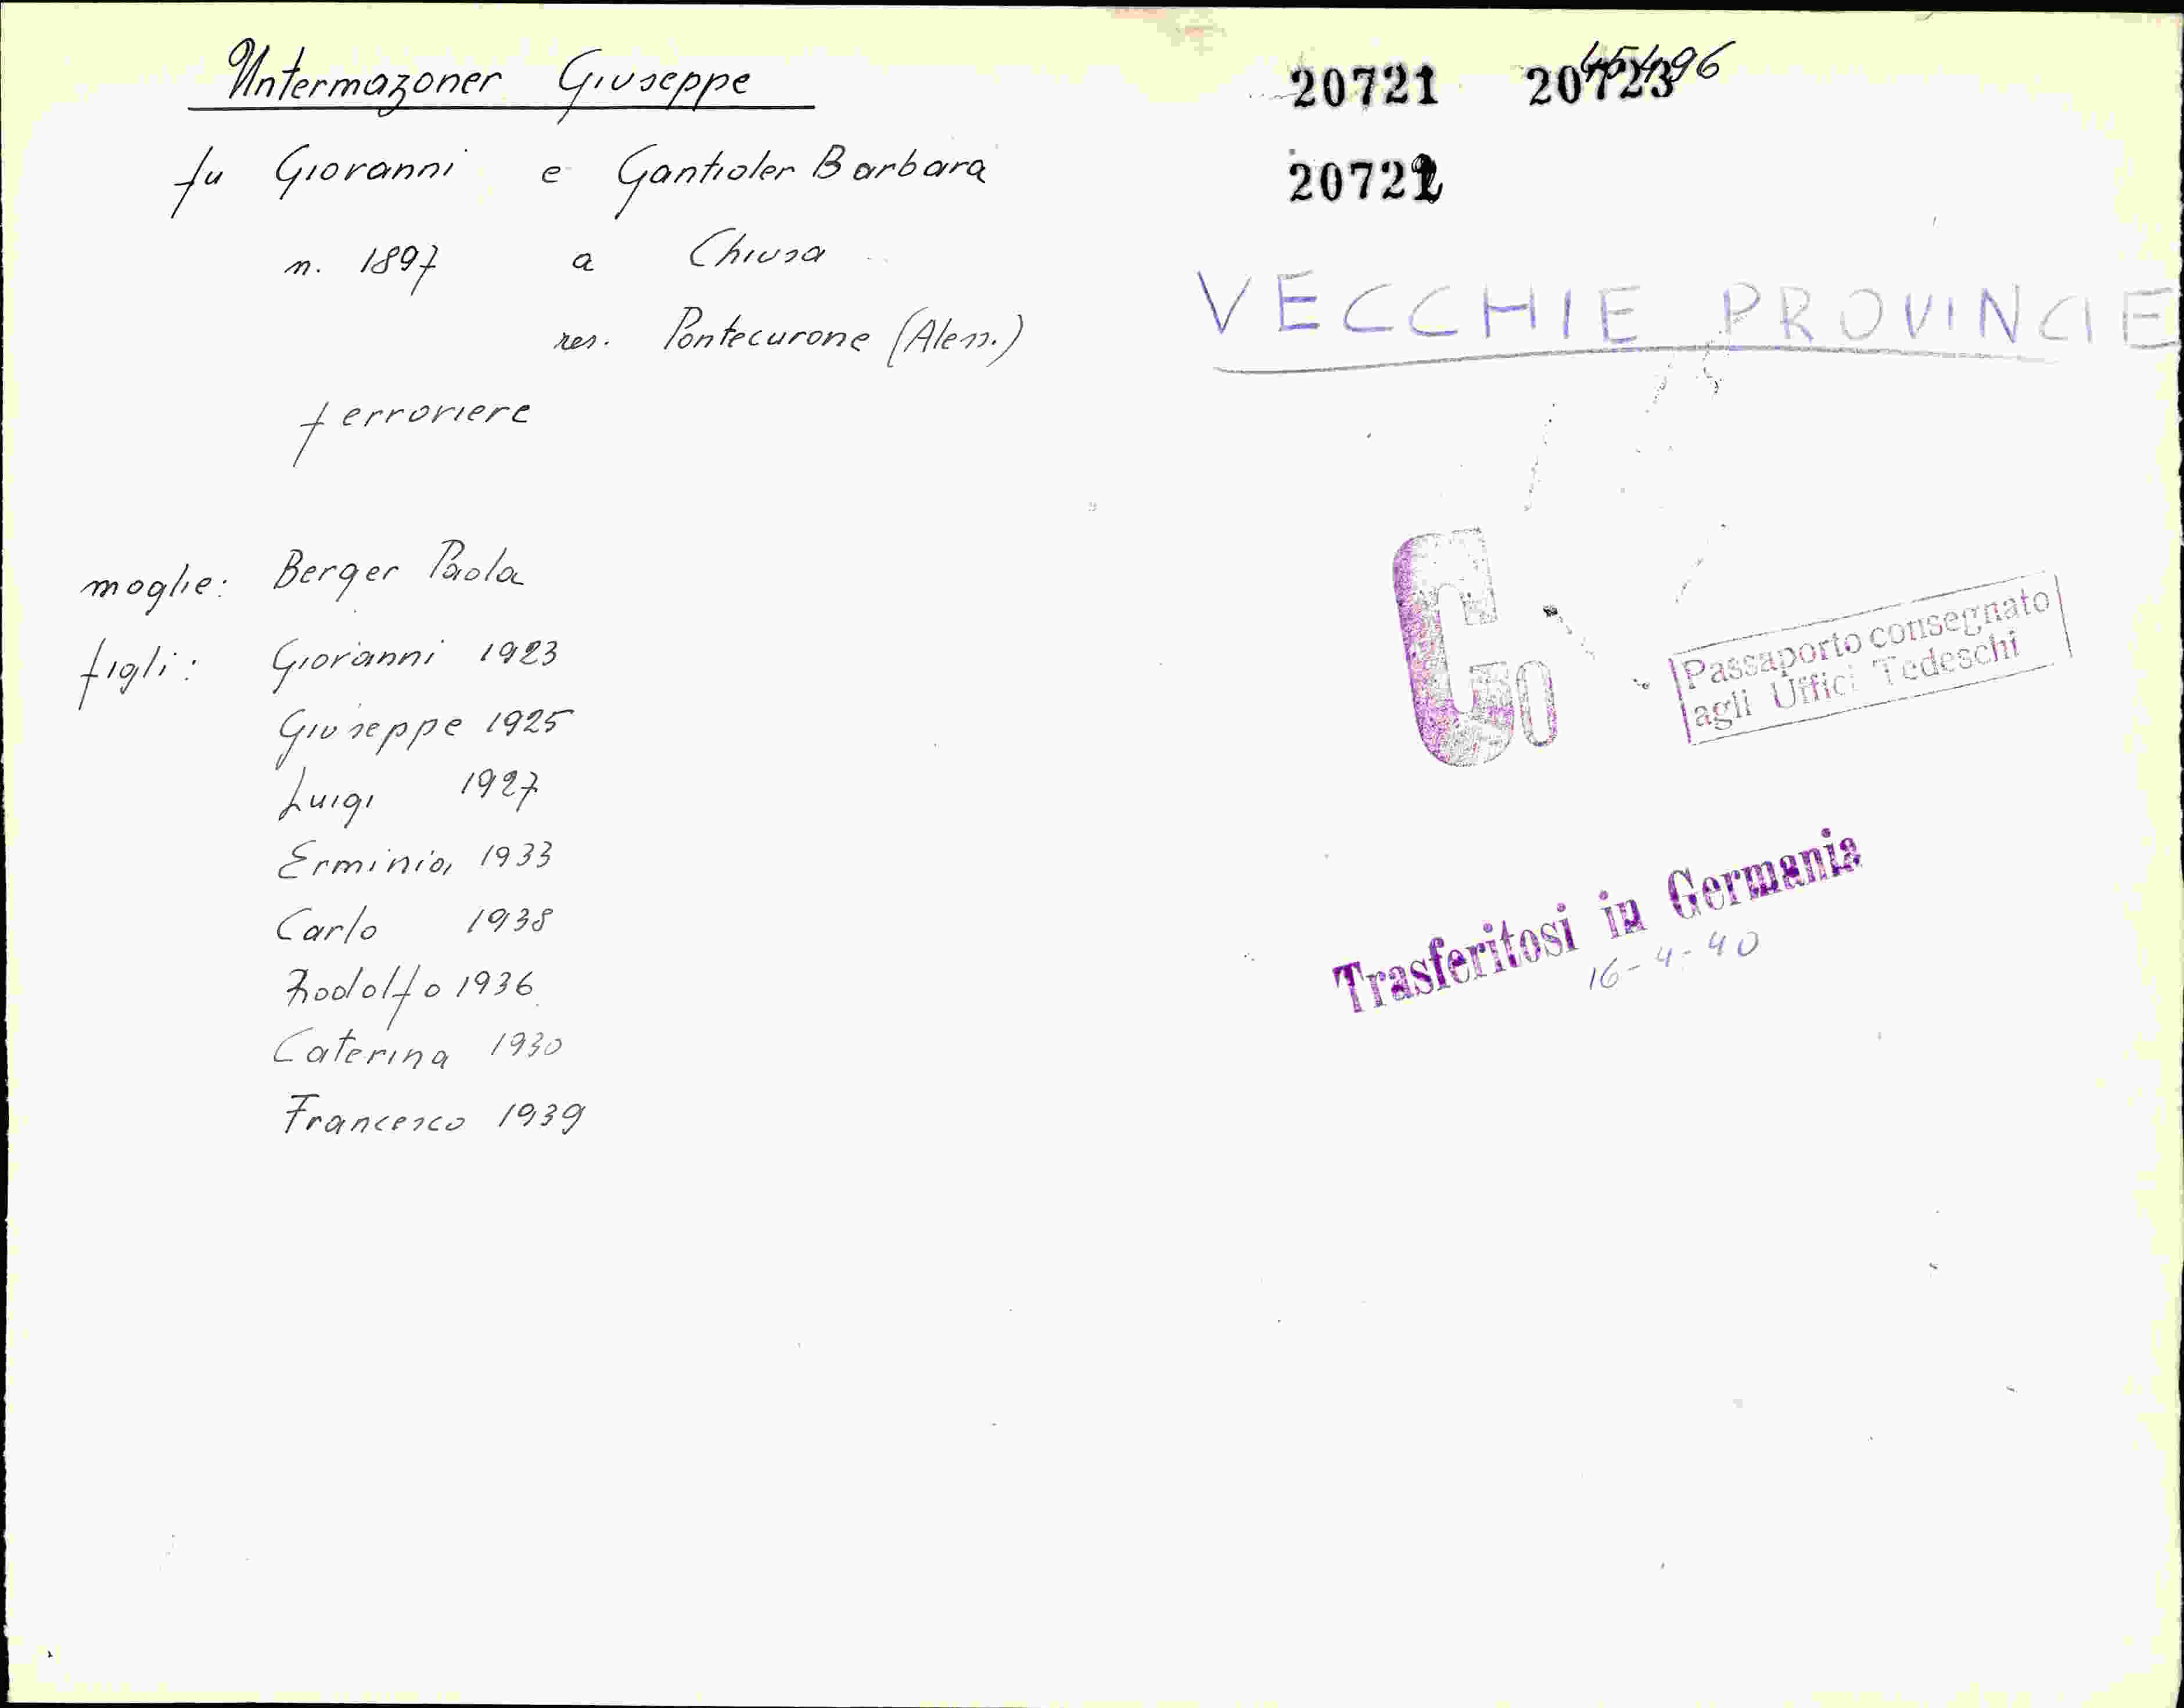 Untermazoner Giuseppe
fu Giovanni e Gantioler Barbara
n. 1897 a Chiusa
res. Pontecurone (Aless.)
ferroviere
moglie: Berger Paola
figli: Giovanni 1923
Giuseppe 1925
Luigi 1927
Erminia 1933
Carlo 1938
Rodolfo 1936
Caterina 1930
Francesco 1939
20721 20723
20722
VECCHIE PROVINCIE
C
50
Passaporto consegnato
agli Uffici Tedeschi
Trasferitosi in Germania
16-4-40